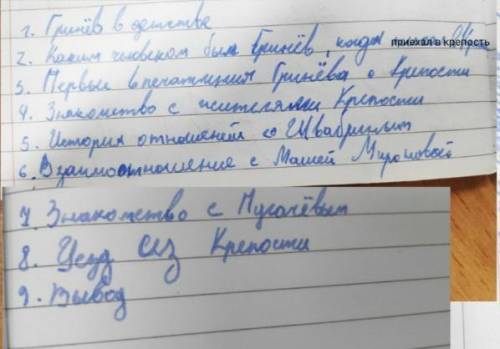 1. Гринёв в детстве
2. Каким человеком был Гринёв, когда приехал в крепость
3. Первые впечатления Гринёва о Крепости
4. Знакомство с жителями Крепости
5. История отношений со Швабриным
6. Взаимоотношение с Машей Мироновой
7. Знакомство с Пугачёвым
8. Уезд из Крепости
9. Вывод